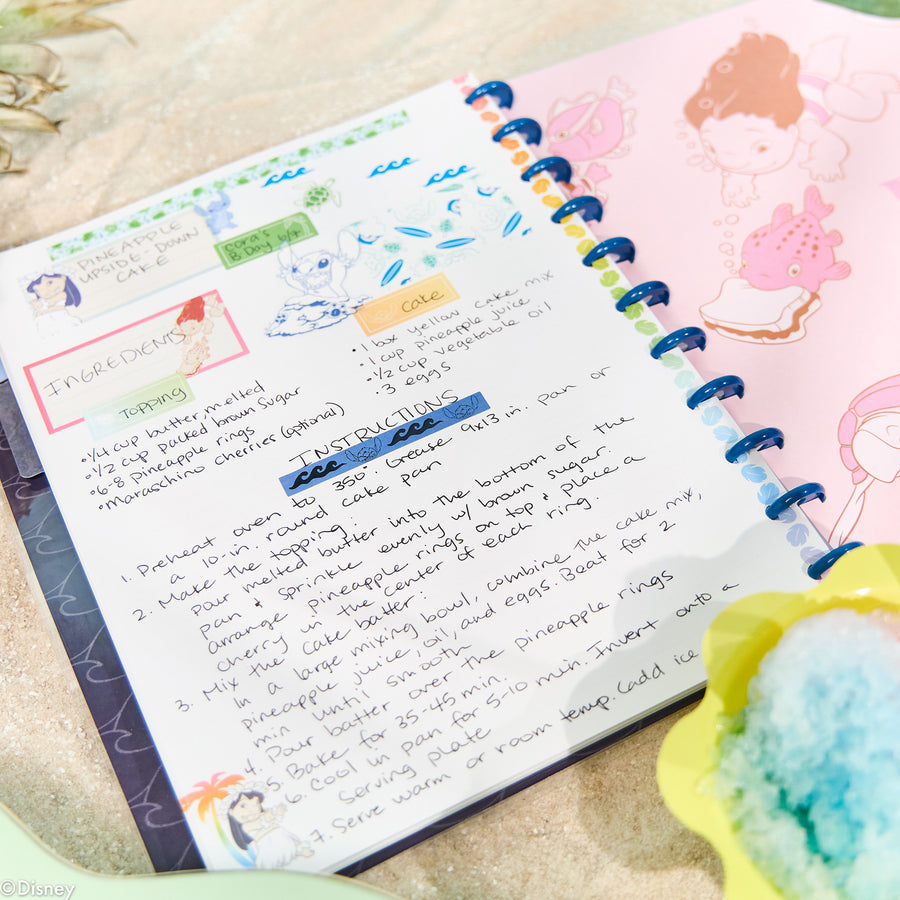 PINEAPPLE
UPSIDE-DOWN
CAKE
Cora's
B Day 6/9
INGREDIENTS
Topping
• 1/4 cup butter, melted
• 1/2 cup packed brown sugar
• 6-8 pineapple rings
• Maraschino cherries (optional)
Cake
• 1 box yellow cake mix
• 1 cup pineapple juice
• 1/2 cup vegetable oil
• 3 eggs
INSTRUCTIONS
1. Preheat oven to 350°. Grease 9x13 in. pan or
a 10-in. round cake pan
2. Make the topping:
Pour melted butter into the bottom of the
pan & sprinkle evenly w/ brown sugar.
arrange pineapple rings on top & place a
cherry in the center of each ring.
3. Mix the cake batter:
In a large mixing bowl, combine the cake mix,
pineapple juice, oil, and eggs. Beat for 2
min until smooth
4. Pour batter over the pineapple rings
5. Bake for 35-45 min.
6. Cool in pan for 5-10 min. Invert onto a
serving plate
7. Serve warm or room temp. (add ice
©Disney